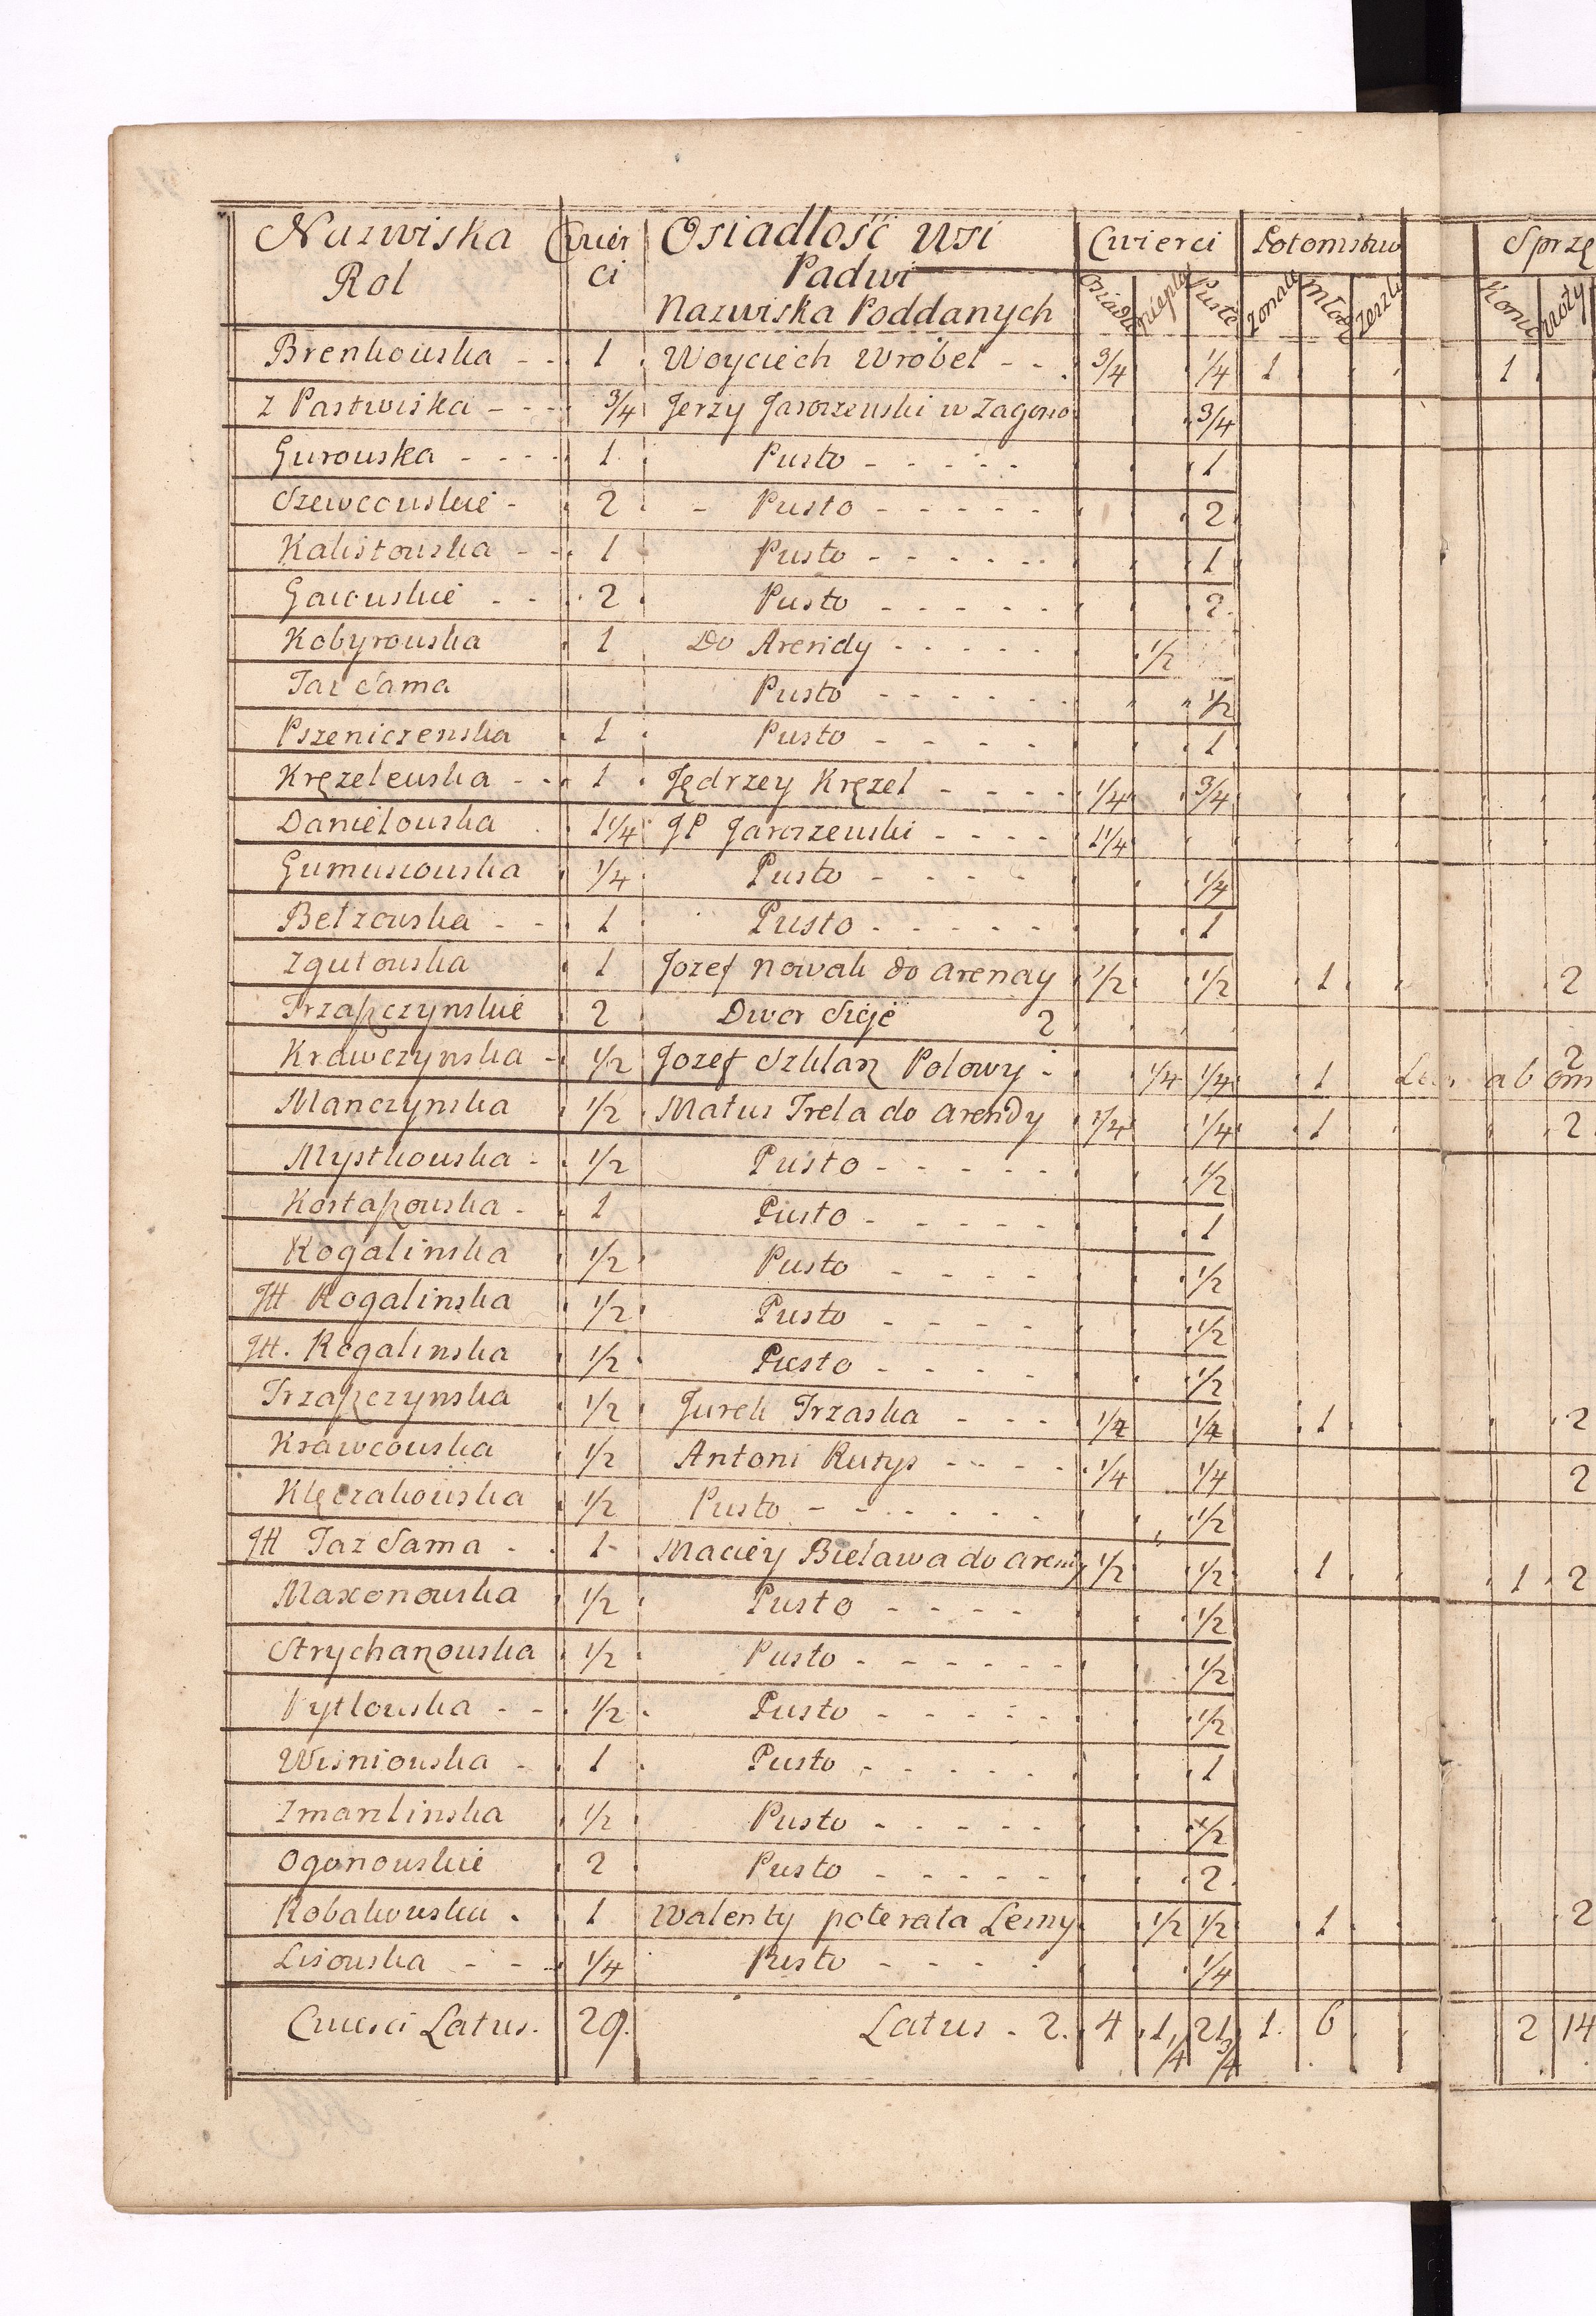 Nazwiska Rol Cwierci Osiadłość Wsi Padwi Nazwiska Poddanych Cwierci Potomstwo Sprzę
Osiadłe Puste żonate Młodz Konie Woły
Brenkowska - - 1 Woyciech Wróbel - - 3/4 1/4 1 1
z Pastwiska - - - 3/4 Jerzy Jaroszewski w Zagono 3/4
Gurowska - - - - 1 Pusto - - - - - 1
Szewcowskie - 2 - Pusto - - - - - 2
Kalistowska - - 1 Pusto - - - - - - 1
Gaiowskie - - 2 Pusto - - - - - 2
Kobyrowska 1 Do Arendy - - - - - 1/2
Taz Sama Pusto - - - - - 1/2
Pszeniczenska 1 Pusto - - - - 1
Kręzelewska - - 1 Jędrzey Kręzel - - - - 1/4 3/4
Danielowska 1 1/4 JP Jaroszewski - - - - 1 1/4
Gumusowska 1/4 Pusto - - - - 1/4
Betzowska - - 1 Pusto - - - - - 1
Zgutowska 1 Jozef Nowak do Arendy 1/2 1/2 1 2
Trzapczynskie 2 Dwor Sieje 2
Krawczynska - 1/2 Jozef Szklarz Polowy - 1/4 1/4 1 ab om 2
Manczynska 1/2 Matus Trela do Arendy 1/4 1/4 1 2
Mystkowska - 1/2 Pusto - - - - - 1/2
Kostapowska - 1 Pusto - - - - - 1
Rogalinska 1/2 Pusto - - - - 1/2
Jtt Rogalinska 1/2 Pusto - - - - 1/2
Jtt. Rogalinska 1/2 Pusto - - - - 1/2
Trzapczynska 1/2 Jurek Trzaska - - - 1/4 1/4 1 2
Krawcowska 1/2 Antoni Rutys - - - - 1/4 1/4 2
Klęczakowska 1/2 Pusto - - - - - - 1/2
Jtt Taz Sama - 1 Maciey Bielawa do Arendy 1/2 1/2 1 1 2
Maxonowska 1/2 Pusto - - - - 1/2
Strychazowska 1/2 Pusto - - - - - - 1/2
Pytlowska - - 1/2 Pusto - - - - - 1/2
Wisniowska - 1 Pusto - - - - - 1
Zmarzlinska 1/2 Pusto - - - - - 1/2
Ogonowskie 2 Pusto - - - - - 2
Robakowska . 1 Walenty poterała Lesny 1/2 1/2 1 2
Lisowska - - - 1/4 Pusto - - - - 1/4
Cwierci Latus. 29. Latus - 2. 4 1 1/4 21 3/4 1. 6 2 14